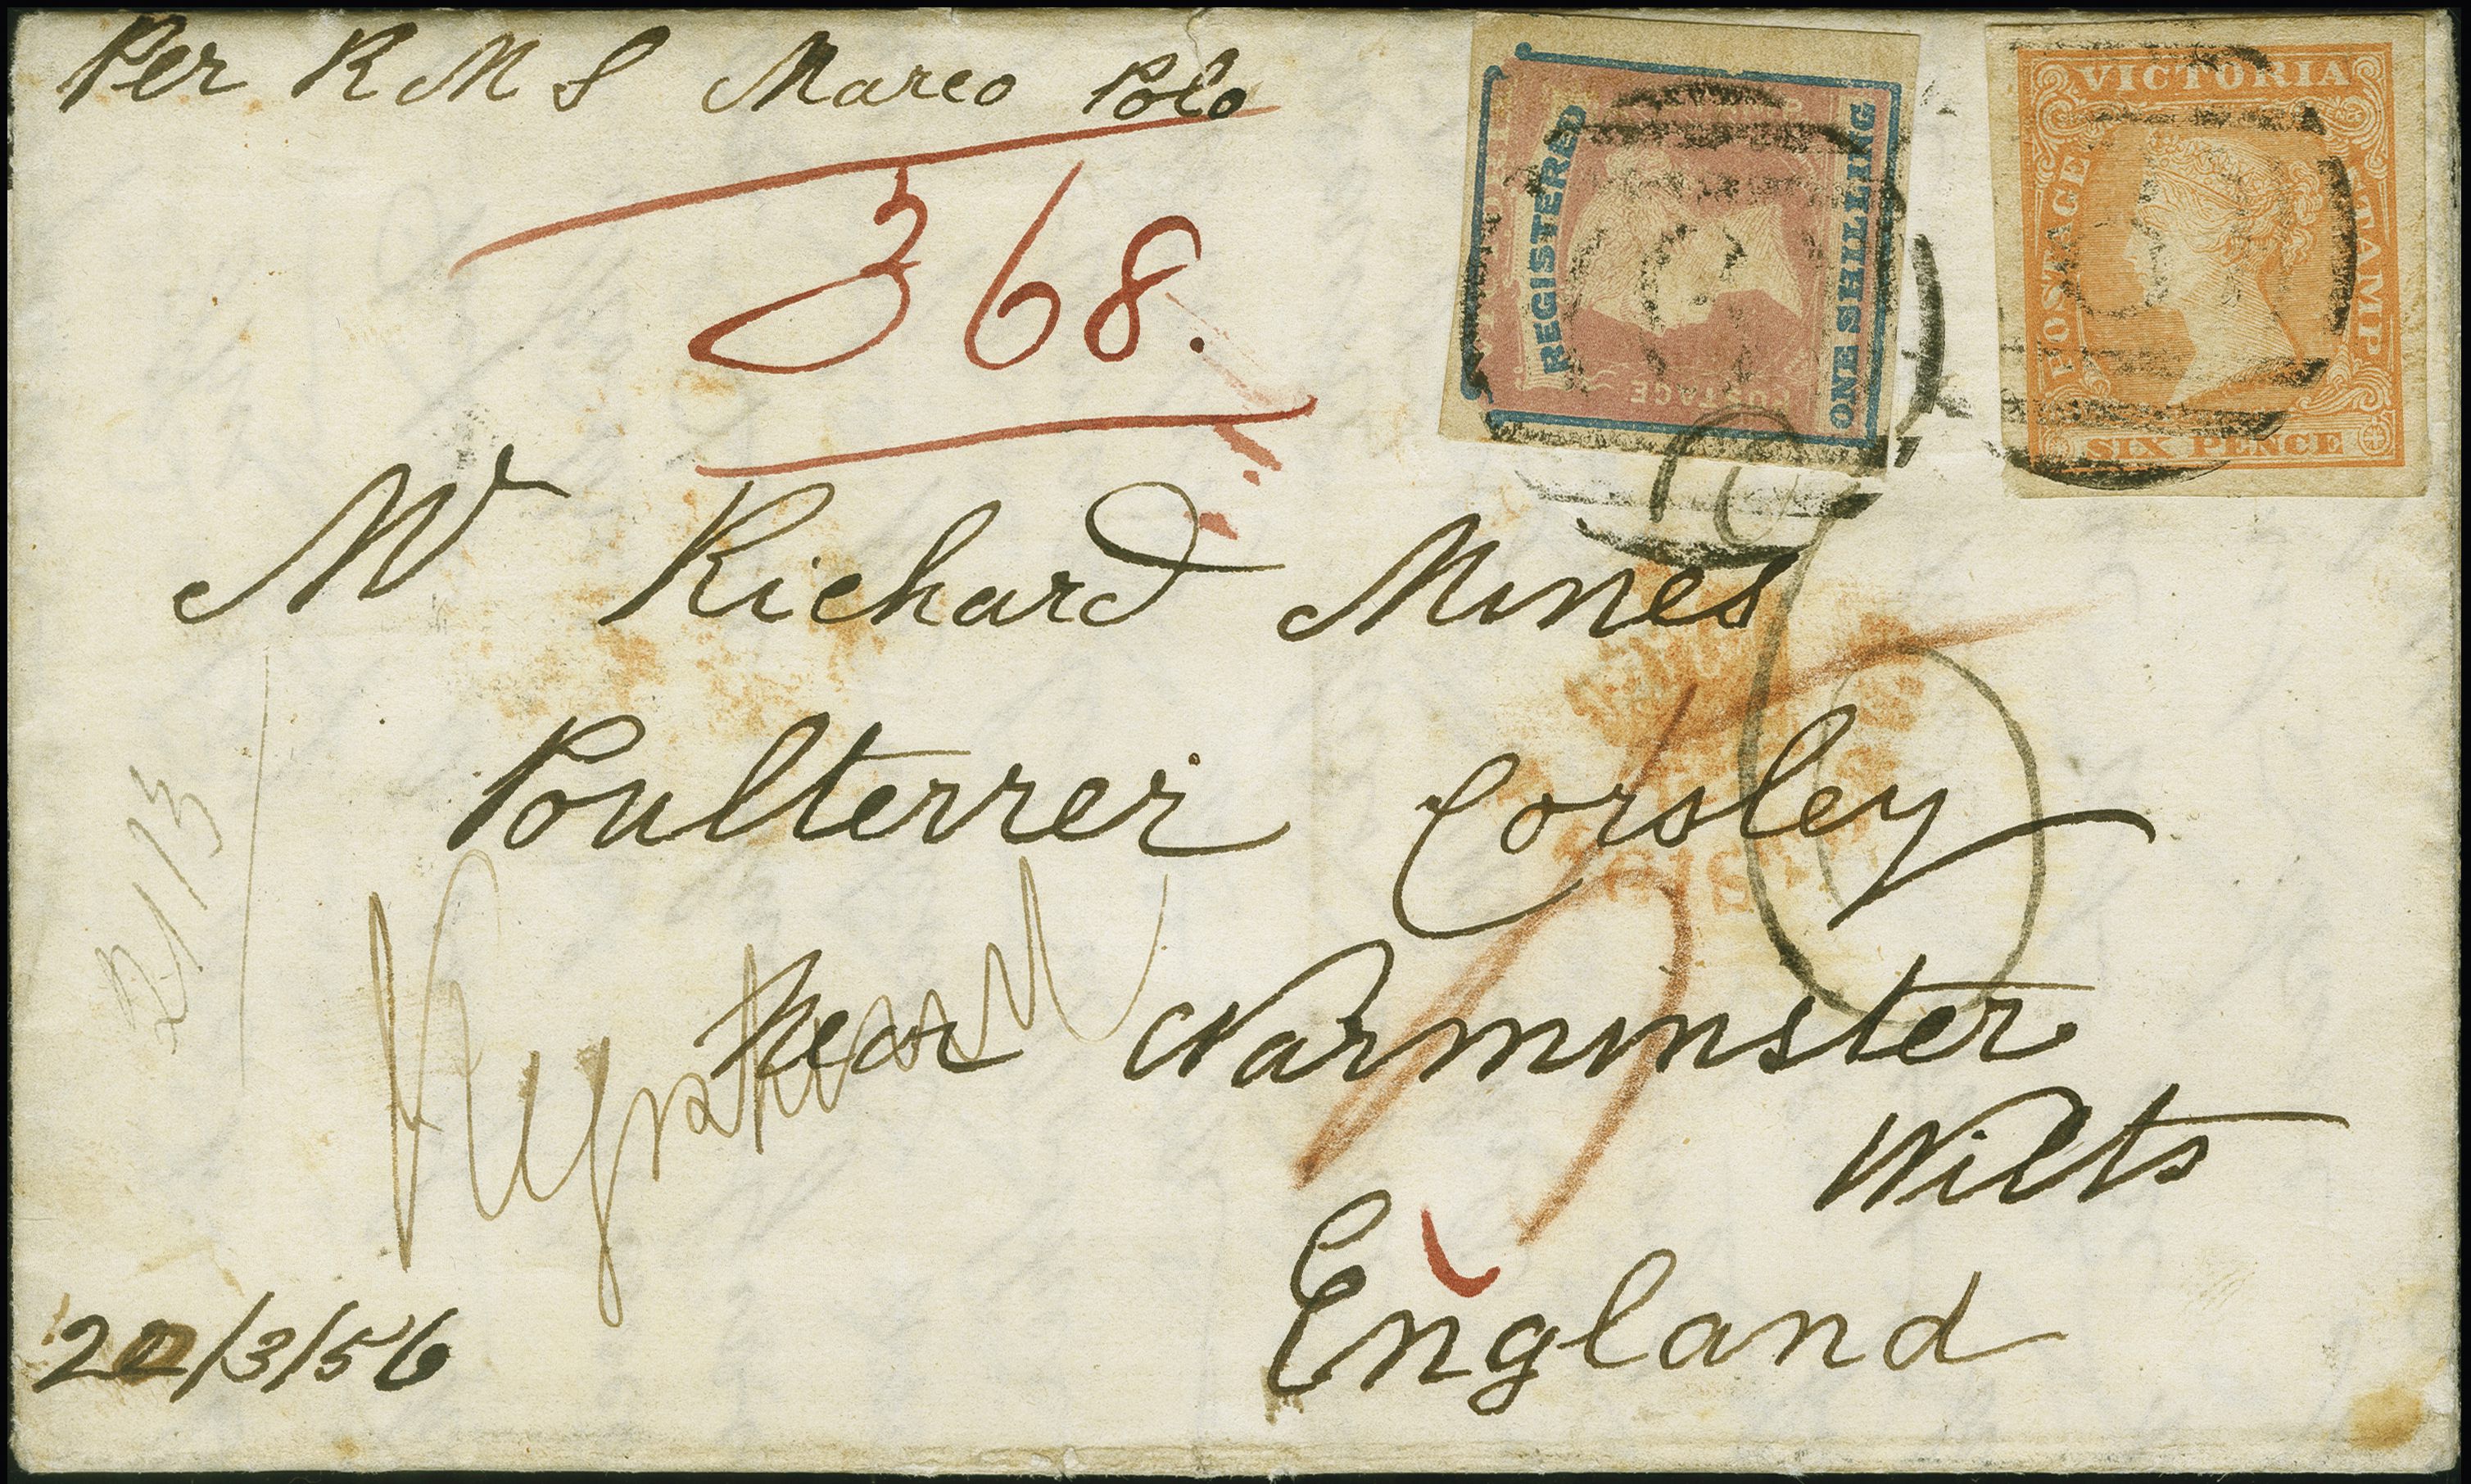 Per R M S Marco Polo
368.
REGISTERED
ONE SHILLING
POSTAGE
VICTORIA
POSTAGE
STAMP
SIX PENCE
Mr Richard Mines
Poulterrer Corsley
Near Warminster
Wilts
England
6
21/3
22/3/56